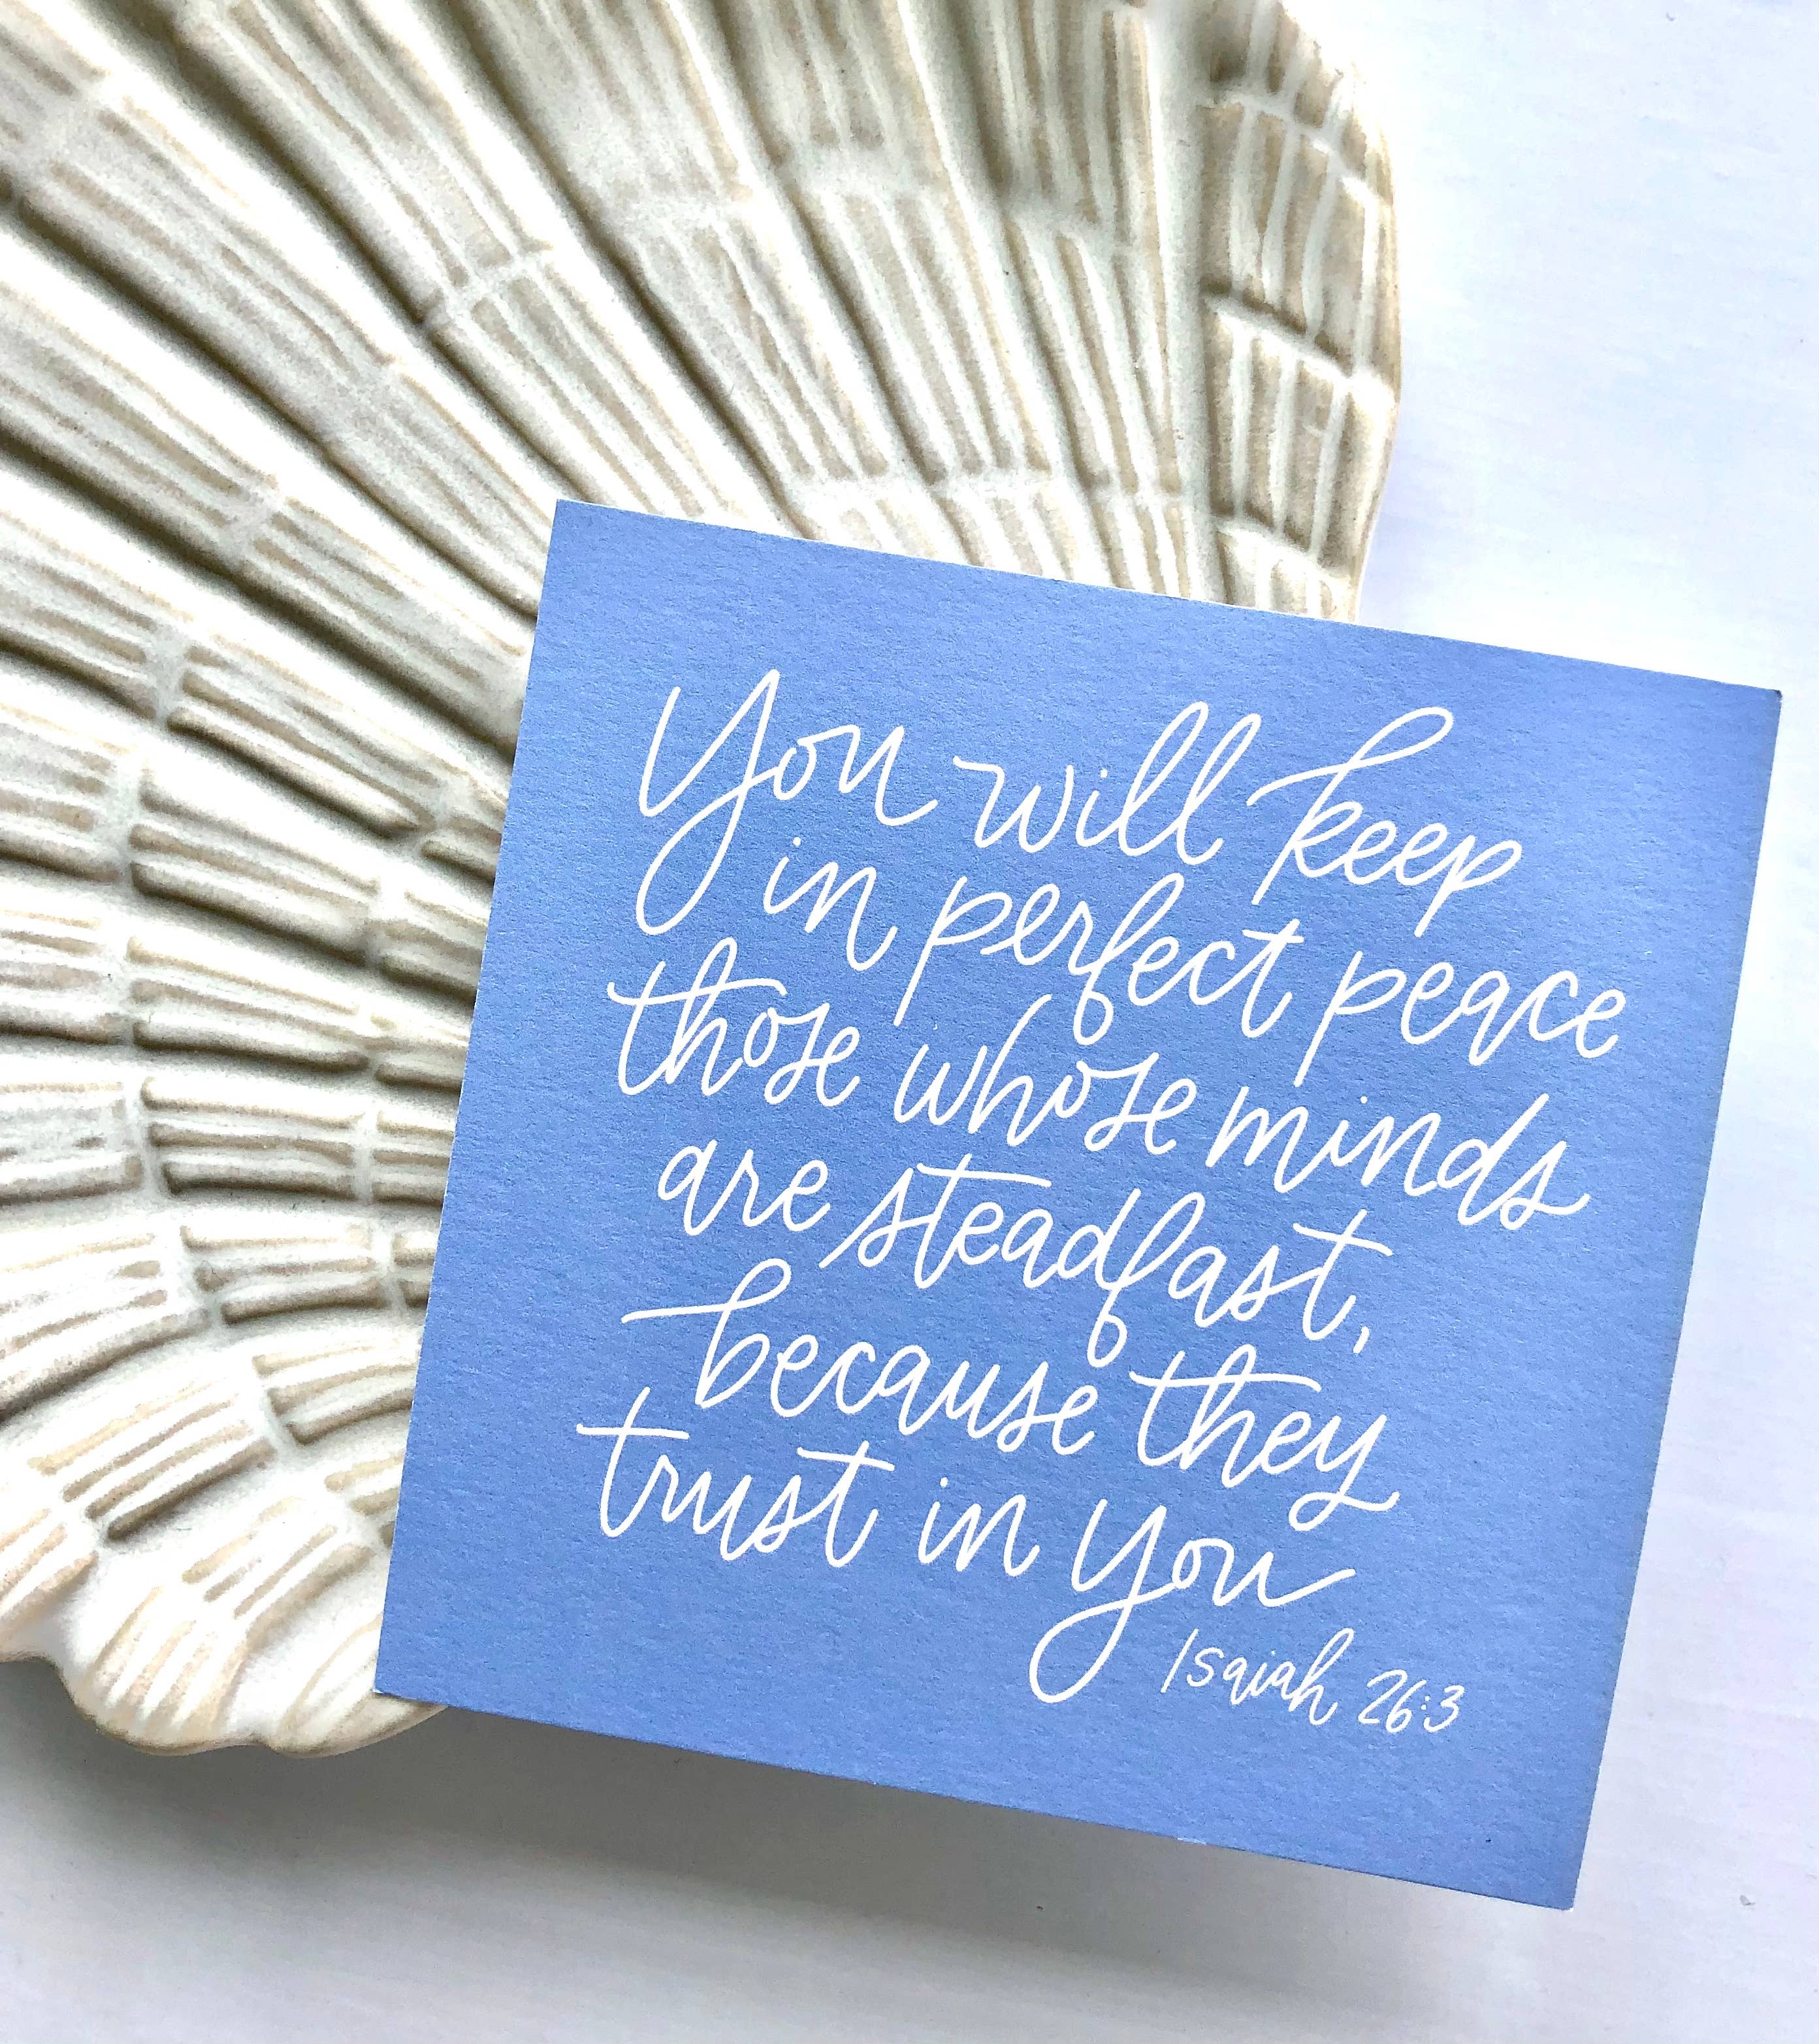 You will keep
in perfect peace
those whose minds
are steadfast,
because they
trust in You
Isaiah 26:3